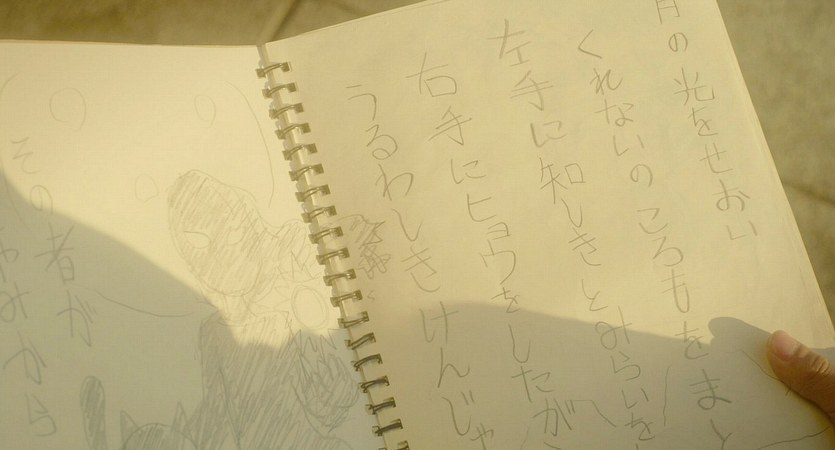 月の光をせおい
くれないのころもをまと
左手に知しきとみらいを
右手にヒョウをしたが
うるわしきけんじゃ
その者が
やみから